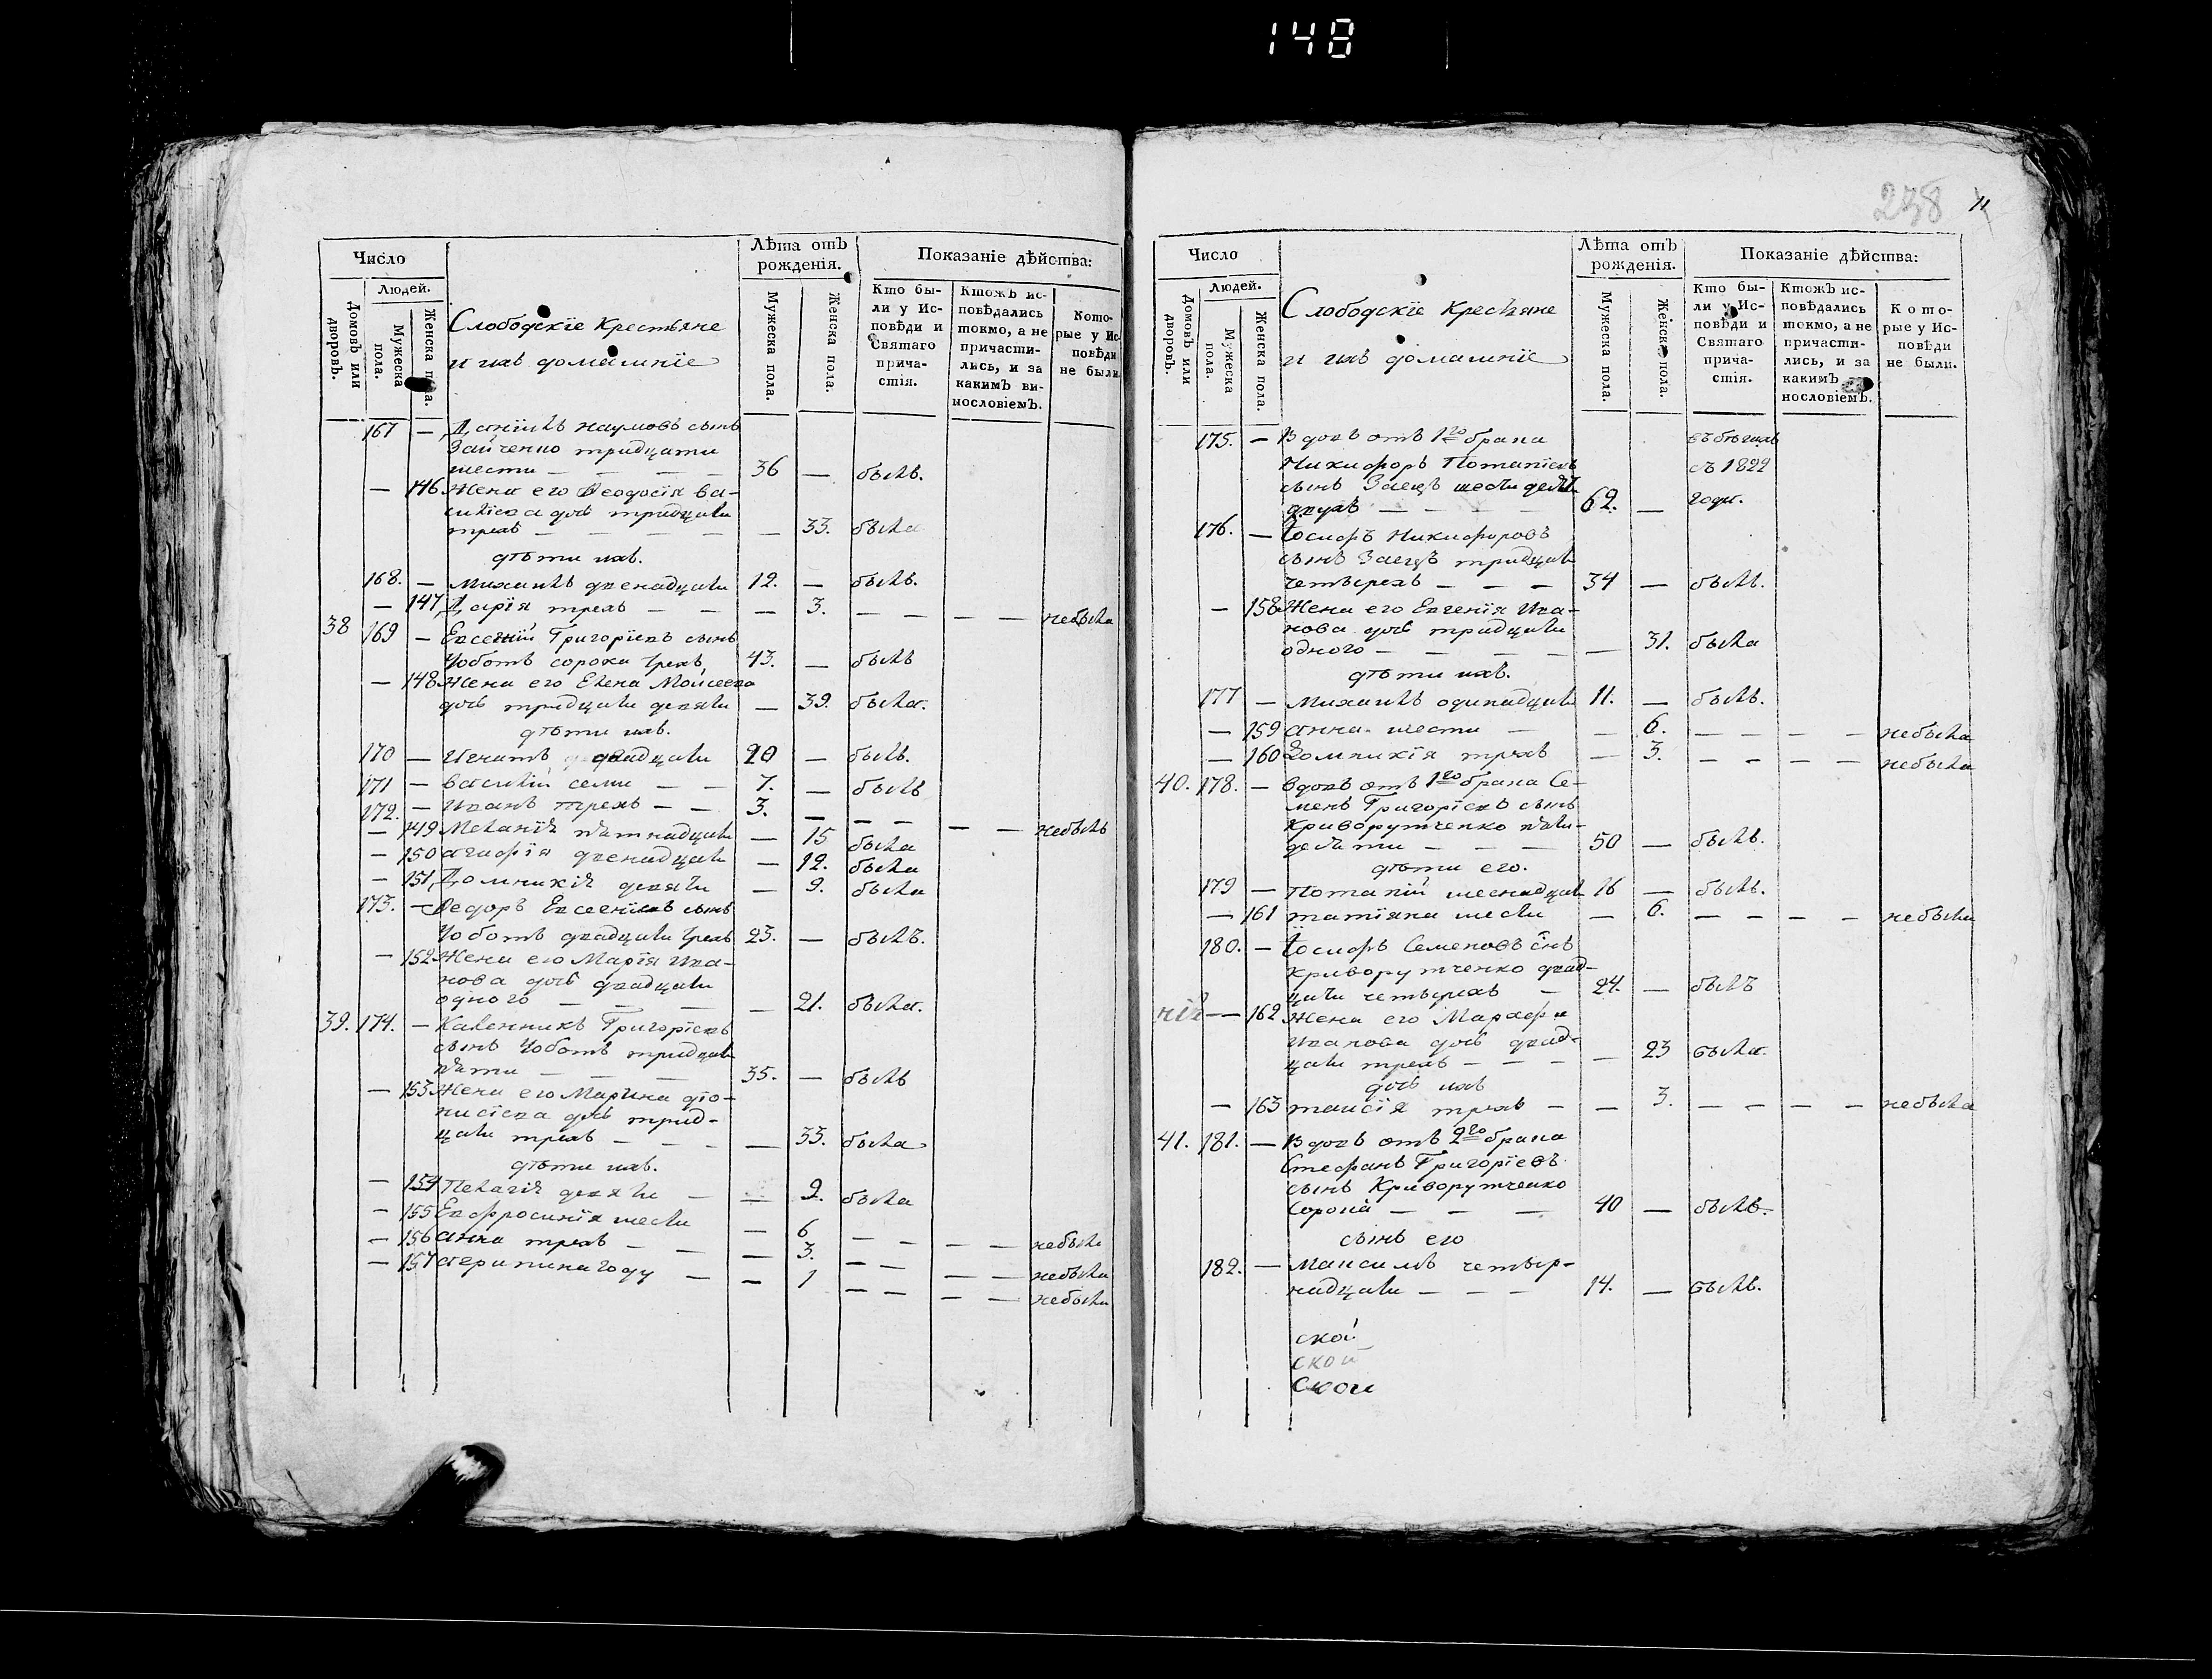 148
Число
Людей.
Домовъ или дворовъ.
Мужеска пола.
Женска пола.
Слободскїе Крестьяне
и ихъ домашнїе
Лѣта отъ рожденія.
Мужеска пола.
Женска пола.
Показаніе дѣйства:
Кто были у Исповѣди и Святаго причастія.
Ктожъ исповѣдались токмо, а не причастились, и за какимъ винословіемъ.
Которые у Исповѣди не были.
167 — Данїилъ Наумовъ сынъ
Зайченко тридцати
шести — — — 36 — былъ.
— 146 Жена его Ѳеодосїя Ва-
силїева дочь тридцати
трехъ — — — — 33. была
дѣти ихъ.
168. — Михаилъ двенадцати 12. — былъ.
— 147 Дарїя трехъ — — — 3. — — — — небыла
38 169 — Евсевїй Григорїевъ сынъ
Чоботъ сорока трехъ 43. — былъ
— 148 Жена его Елена Мойсеева
дочь тридцати девяти — 39. была.
дѣти ихъ.
170 — Игнатъ двадцати 20 — былъ.
171 — Василїй семи — — 7. — былъ
172. — Иванъ трехъ — — 3. — — — — — небылъ
— 149 Меланїя пятнадцати — 15 была
— 150 Агафїя двенадцати — 12. была
— 151 Домникїя девяти — 9. была
173. — Ѳедоръ Евсевїевъ сынъ
Чоботъ двадцати трехъ 23. — былъ.
— 152 Жена его Марїя Ива-
нова дочь двадцати
одного — — — — 21. была.
39. 174. — Каленникъ Григорїевъ
сынъ Чоботъ тридцати
пяти — — — 35. — былъ
— 153 Жена его Марина Дїо-
нисїева дочь трид-
цати трехъ — — — — 33. была
дѣти ихъ.
— 154 Пелагїя девяти — — 9. была
— 155 Евфросинїя шести — 6 — — — — небыла
— 156 Анна трехъ — — — 3. — — — — небыла
— 157 Агрипина году — — 1 — — — — небыла
238 11
Число
Людей.
Домовъ или дворовъ.
Мужеска пола.
Женска пола.
Слободскїе Крестьяне
и ихъ домашнїе
Лѣта отъ рожденія.
Мужеска пола.
Женска пола.
Показаніе дѣйства:
Кто были у Исповѣди и Святаго причастія.
Ктожъ исповѣдались токмо, а не причастились, и за какимъ винословіемъ.
Которые у Исповѣди не были.
175. — Вдовъ отъ 1го брака въ бѣгахъ
Никифоръ Потапїевъ съ 1822
сынъ Заецъ шестидесять года.
двухъ — — — 62. —
176. — Іосифъ Никифоровъ
сынъ Заецъ тридцати
четырехъ — — — 34 — былъ.
— 158 Жена его Евгенїя Ива-
нова дочь тридцати
одного — — — — 31. была
дѣти ихъ.
177 — Михаилъ одинадцати 11. — былъ.
— 159 Анна шести — — 6. — — — — небыла
— 160 Домникїя трехъ — 3. — — — — небыла
40. 178. — Вдовъ отъ 1го брака Се-
менъ Григорїевъ сынъ
Криворутченко пяти-
десяти — — — 50 — былъ.
дѣти его.
179 — Потапїй шеснадцати 16 — былъ.
— 161 Татїяна шести — 6. — — — — небыла
180. — Іосифъ Семеновъ снъ
Криворутченко двад-
цати четырехъ — 24. — былъ
— 162 Жена его Марфа
Иванова дочь двад-
цати трехъ — — — — 23 была.
дочь ихъ
— 163 Таисїя трехъ — — 3. — — — — небыла
41. 181. — Вдовъ отъ 2го брака
Стефанъ Григорїевъ
сынъ Криворутченко
сорока — — — 40 — былъ.
сынъ его
182. — Максимъ четыр-
надцати — — — 14. — былъ.
ской
ской
ской